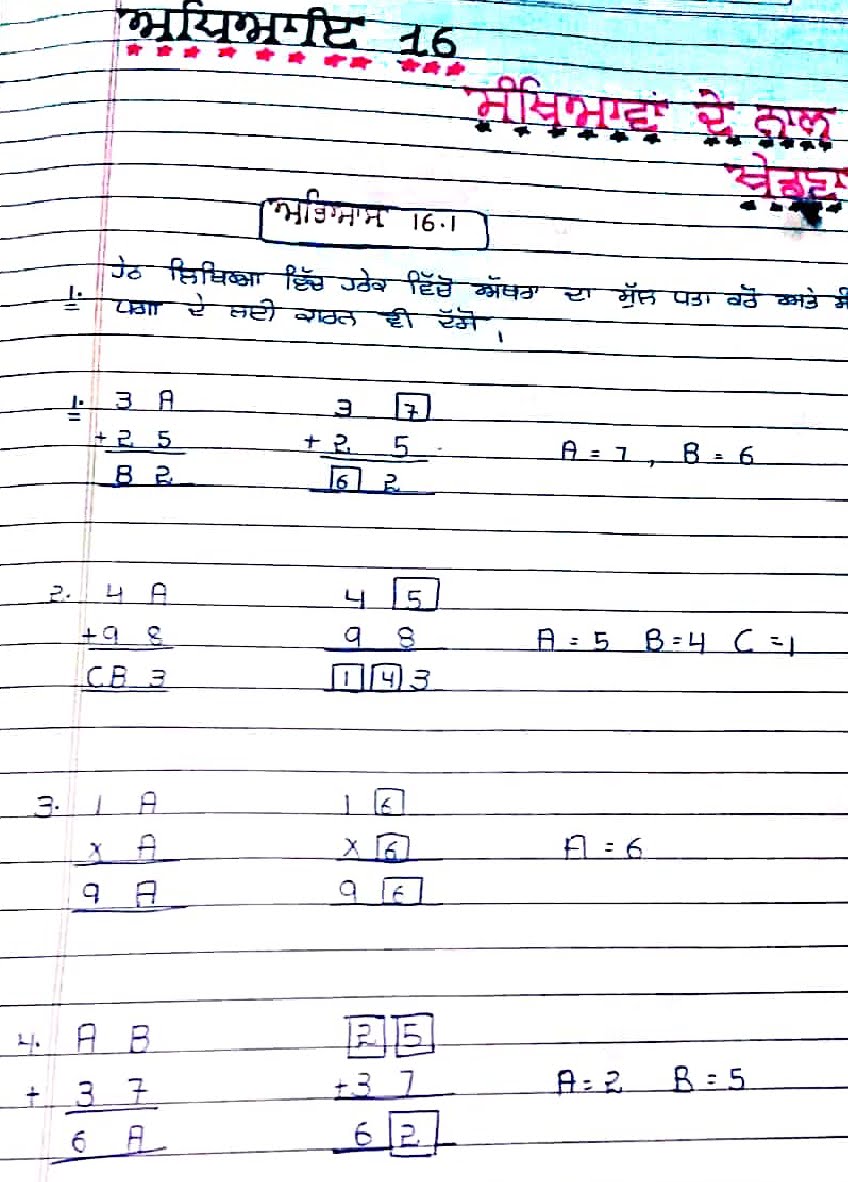 ਅਧਿਆਇ 16
ਸੰਖਿਆਵਾਂ ਦੇ ਨਾਲ
ਖੇਡਣਾ
ਅਭਿਆਸ 16.1
1. ਹੇਠ ਲਿਖਿਆ ਵਿੱਚ ਹਰੇਕ ਵਿੱਚੋਂ ਅੱਖਰਾ ਦਾ ਮੁੱਲ ਪਤਾ ਕਰੋ ਅਤੇ
ਪਗਾ ਦੇ ਲਈ ਕਾਰਨ ਵੀ ਦੱਸੋ ।
1. 3 A 3 7
+ 2 5 + 2 5 A = 7 , B = 6
B 2 6 2
2. 4 A 4 5
+9 8 9 8 A = 5 B = 4 C = 1
CB 3 1 4 3
3. 1 A 1 6
x A x 6 A = 6
9 A 9 6
4. A B 2 5
+ 3 7 +3 7 A = 2 B = 5
6 A 6 2